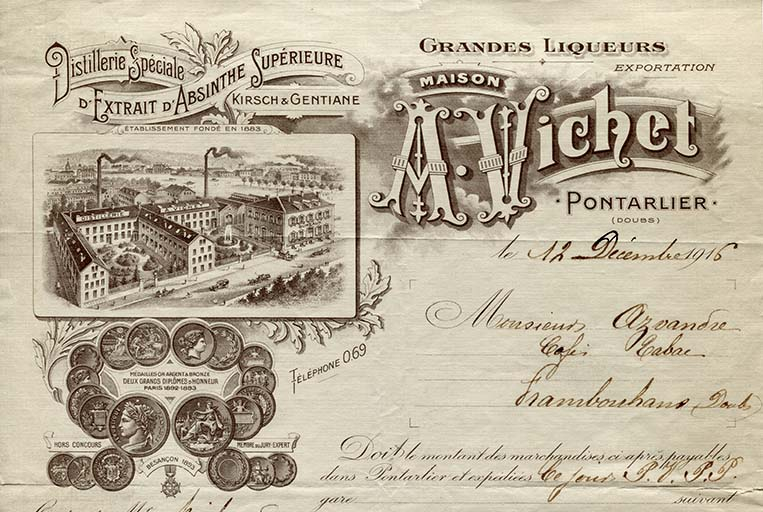 Distillerie Spéciale
D'Extrait d'Absinthe Supérieure
Kirsch & Gentiane
ÉTABLISSEMENT FONDÉ EN 1883
DISTILLERIE
VICHET
GRANDES LIQUEURS
EXPORTATION
MAISON
A. Vichet
PONTARLIER
(DOUBS)
le 12 Décembre 1916
Monsieur Azvandre
Cafés Tabac
Frambouhans (Doubs)
TÉLÉPHONE 0.69
MÉDAILLES OR ARGENT & BRONZE
DEUX GRANDS DIPLÔMES D'HONNEUR
PARIS 1892-1893
HORS CONCOURS
MEMBRE DU JURY-EXPERT
BESANÇON 1893
Doit le montant des marchandises ci après payables
dans Pontarlier et expédiées Ce jour P. V. P. P.
gare suivant